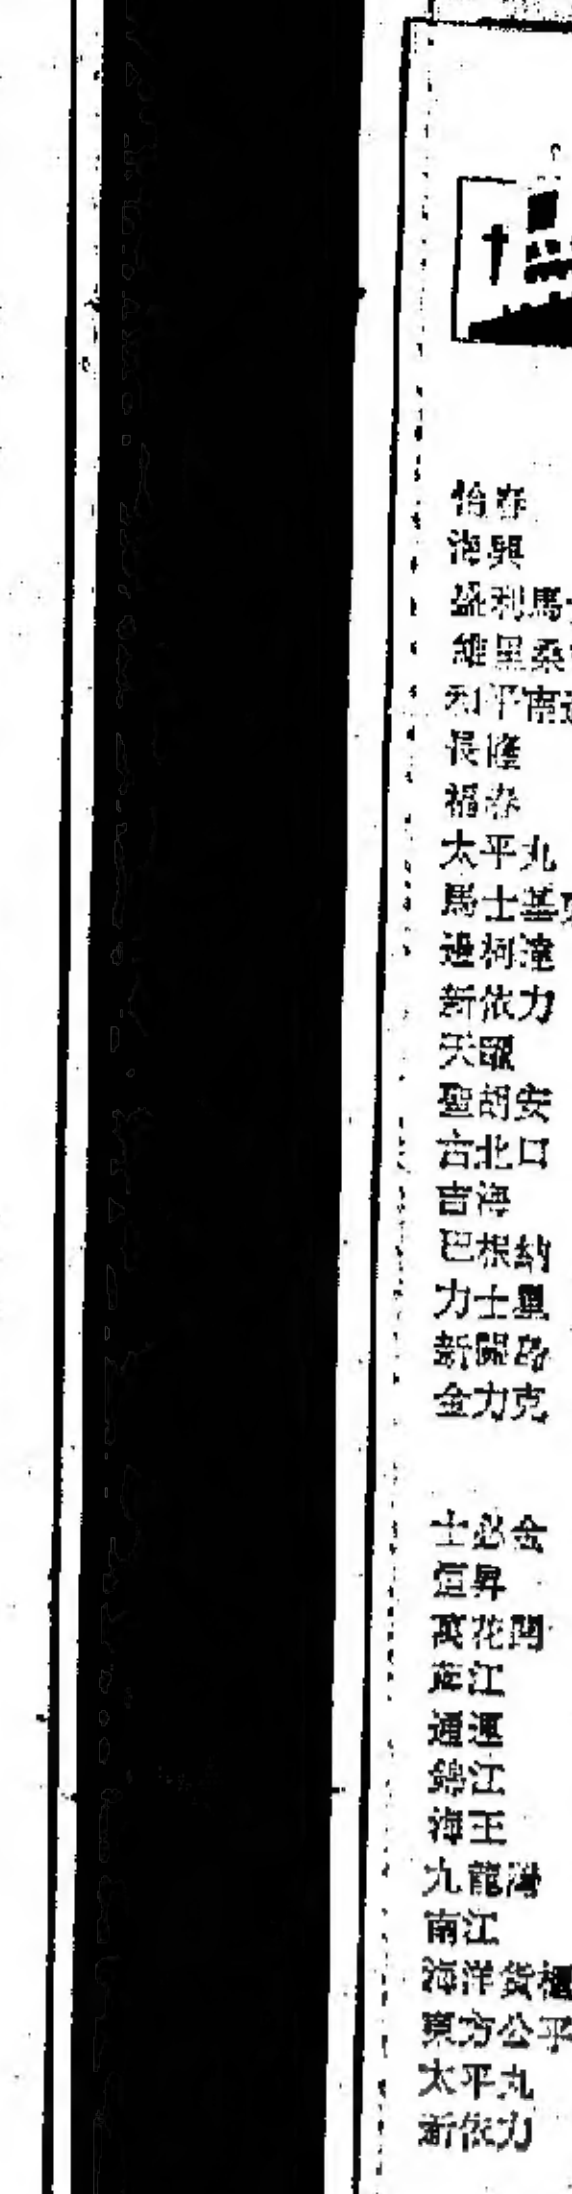 怡春
海興
盛利馬士
維里桑
和平南
長隆
福春
太平丸
馬士基
邊柯達
新依力
天
聖胡安
古北口
吉海
巴根納
力士里
新開路
金力克
士必金
恒昇
萬花門
江
通運
錦江
海王
九龍灣
南江
海洋貨櫃
東方公平
太平丸
新依力